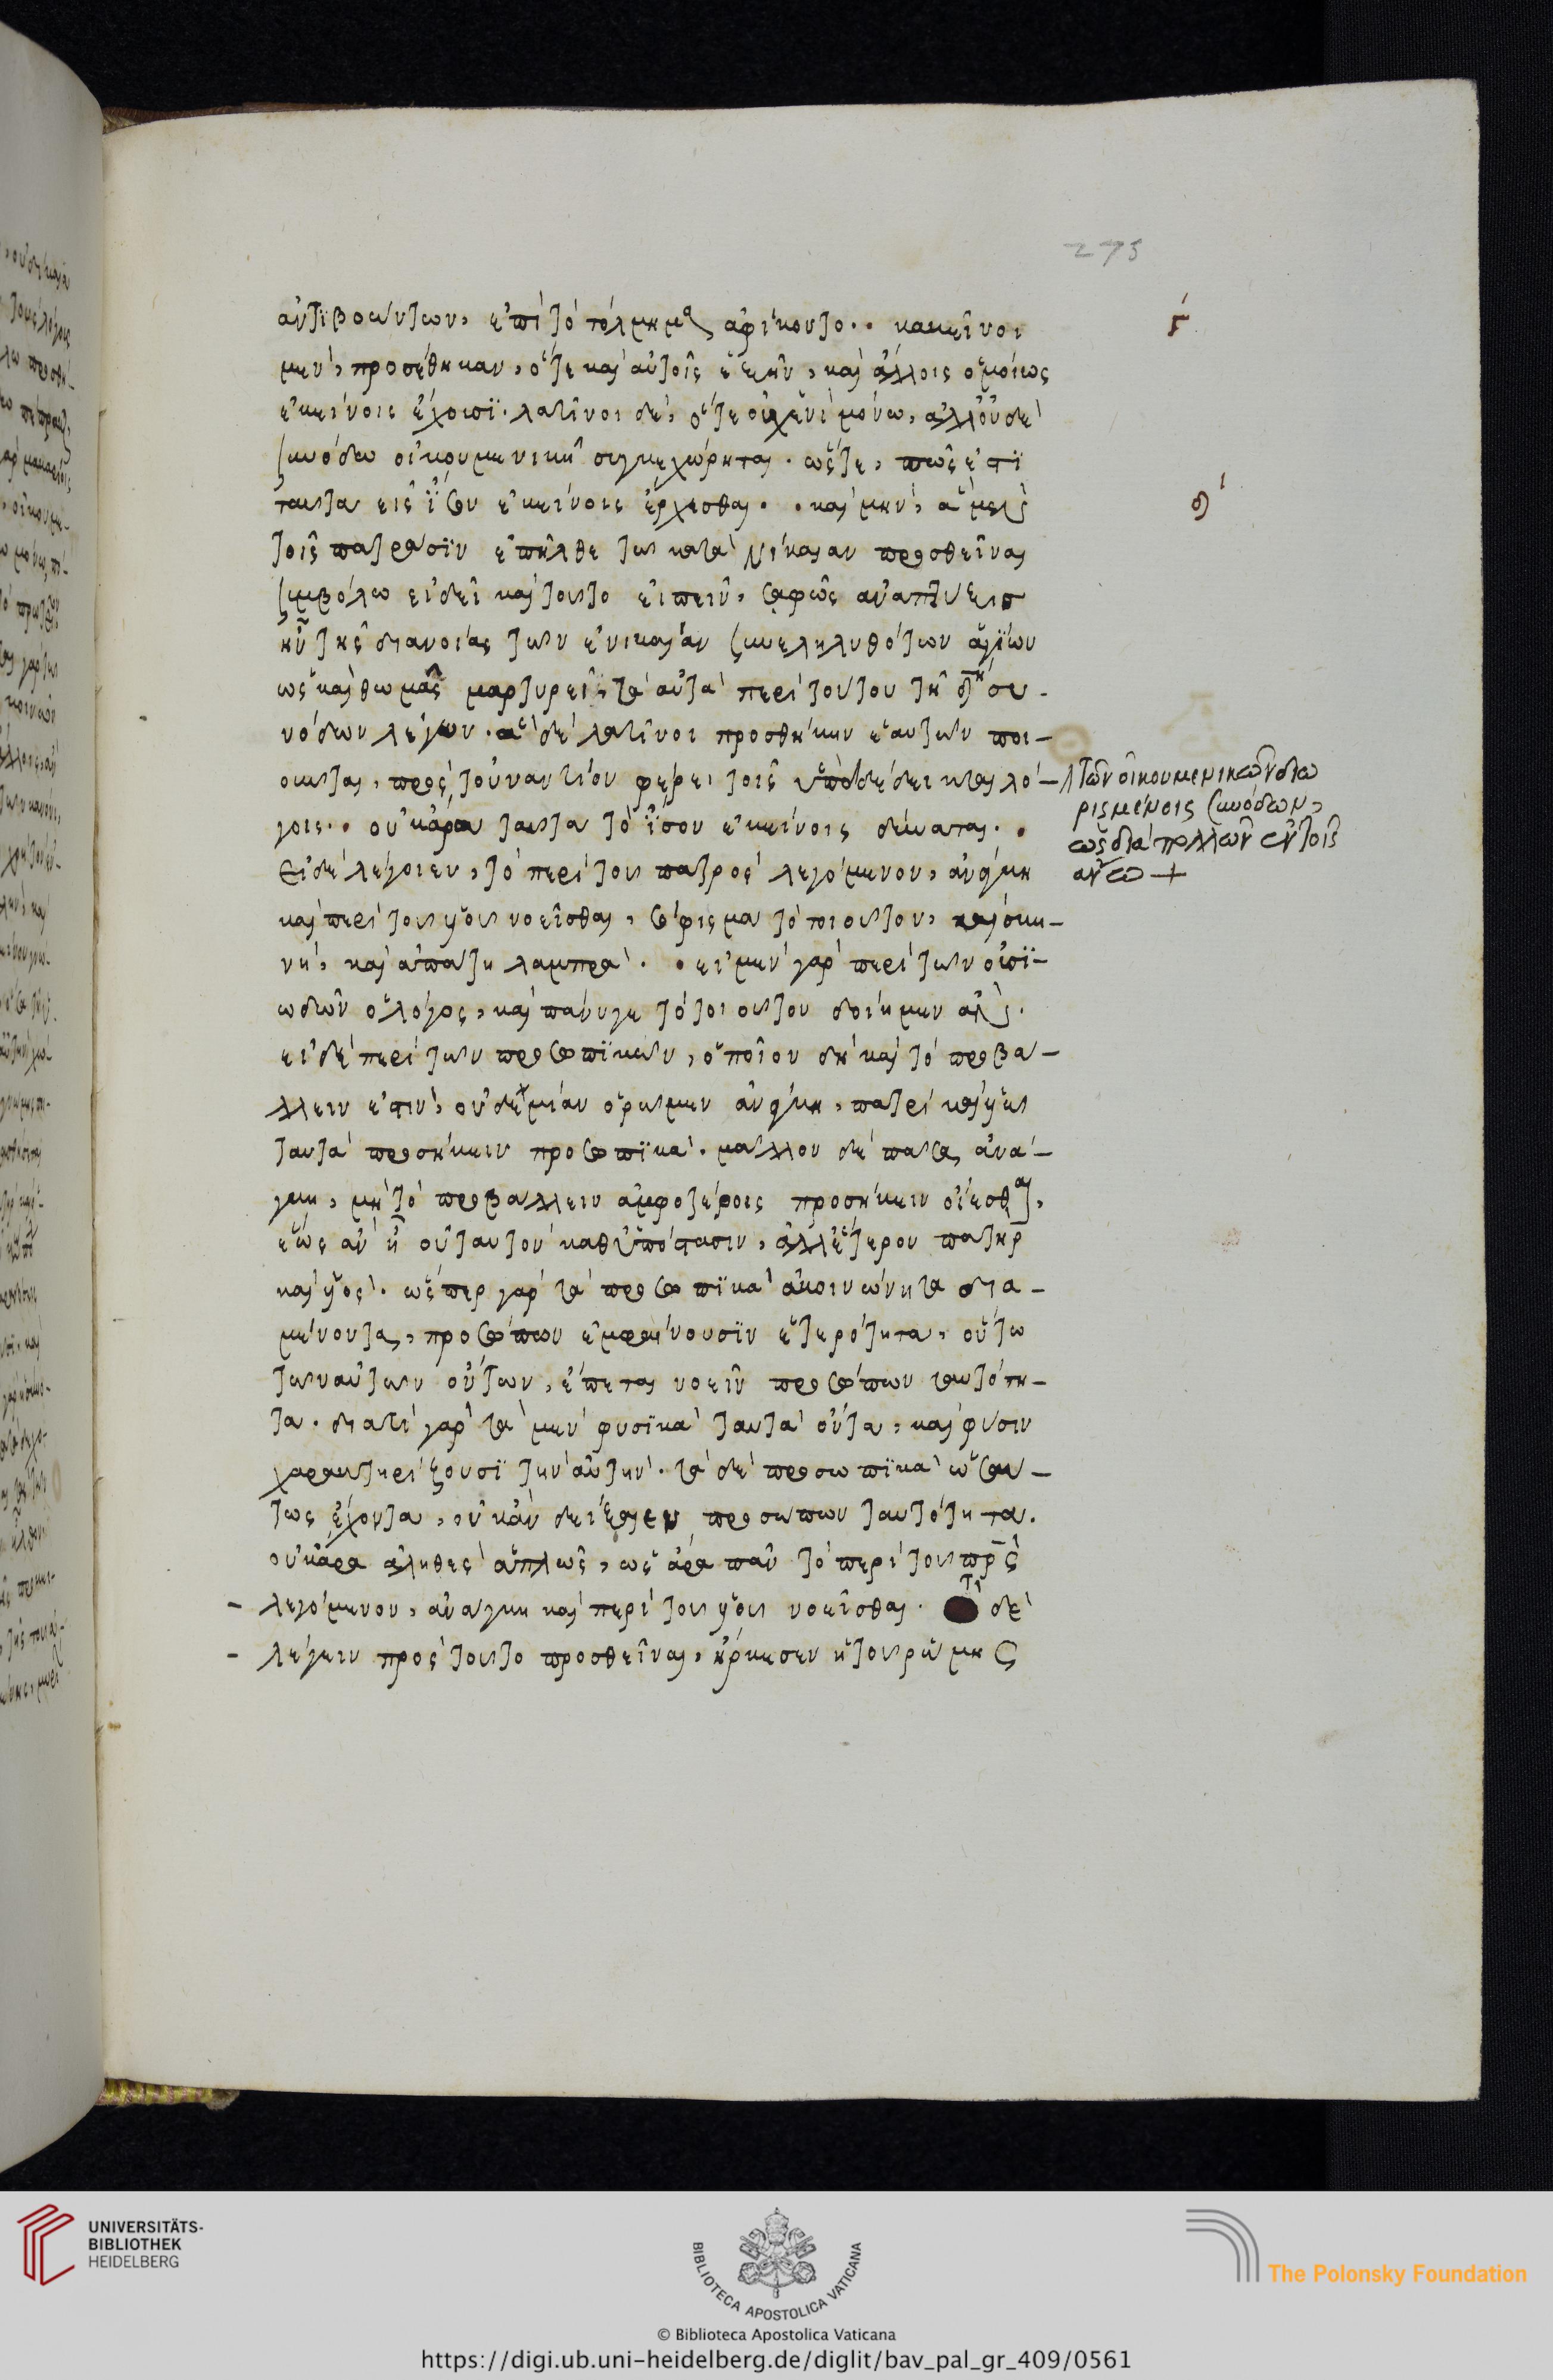 275
ἀντιβοώντων, ἐπὶ τὸ τόλμημα ἀφίκοντο. κἀκεῖνοι
μὲν, προσέθηκαν, ὅτε καὶ αὐτοῖς ἐξῆν, καὶ ἄλλοις ὁμοίως
ἐκείνοις ἔχουσι. λατῖνοι δὲ, ὅτε οὐχ ἑνὶ μόνω, ἀλλ' οὐδὲ
συνόδω οἰκουμενικῆ συγκεχώρηται. ὥστε, πῶς ἐστὶ
ταῦτα εἰς ἴσον ἐκείνοις ἔρχεσθαι. καὶ μὴν, ἃ μὲν
τοῖς πατράσιν ἐπῆλθε τῶ κατὰ νίκαιαν προσθεῖναι
συμβόλω εἰ δεῖ καὶ τοῦτο εἰπεῖν, σαφῶς ἀνάπτυξις
ἦν τῆς διανοίας τῶν ἐν νικαία συνεληλυθότων ἁγίων
ὡς καὶ θωμᾶς μαρτυρεῖ, τὰ αὐτὰ περὶ τούτου τῆ δ΄ η συ-
νόδων λέγων. ἃ δὲ λατῖνοι προσθήκην ἑαυτῶν ποι-
οῦνται, πρὸς τοὐναντίον φέρει τοῖς ὑπὸ δέδεικται λό-
γοις. οὐκ ἄρα ταῦτα τὸ ἴσον ἐκείνοις δύναται.
Εἰ δὲ λέγοιεν, τὸ περὶ τοῦ πατρὸς λεγόμενον, ἀνάγκη
καὶ περὶ τοῦ υἱοῦ νοεῖσθαι, σόφισμα τὸ τοιοῦτον, καὶ σκη-
νὴ, καὶ ἀπάτη λαμπρά. εἰ μὲν γὰρ περὶ τῶν οὐσι-
ωδῶν ὁ λόγος, καὶ πάνυ γε τὸ τοιοῦτον δοίημεν ἀλ.
εἰ δὲ περὶ τῶν προσωπικῶν, ὁποῖον δὴ καὶ τὸ προβά-
λλειν ἐστὶν, οὐδεμίαν ὁρῶμεν ἀνάγκη, πατρὶ καὶ υἱῶ
ταυτὰ προσήκειν προσωπικά. μᾶλλον δὲ πᾶσα ἀνά-
γκη, μὴ τὸ προβάλλειν ἀμφοτέροις προσήκειν οἴεσθαι,
ἕως ἂν ἦ οὐ ταυτὸν καθ' ὑπόστασιν, ἀλλ' ἕτερον πατὴρ
καὶ υἱός. ὥσπερ γὰρ τὰ προσωπικὰ ἀκοινώνητα δια-
μένοντα, προσώπων ἐμφαίνουσιν ἑτερότητα, οὕτω
τῶν αὐτῶν ὄντων, ἕπεται νοεῖν προσώπων ταυτότη-
τα. διατί γὰρ τὰ μὲν φυσικὰ ταυτὰ ὄντα, καὶ φύσιν
χαρακτηρίζουσι τὴν αὐτήν. τὰ δὲ προσωπικὰ ὡσαύ-
τως ἔχοντα, οὐκ ἂν δείξαιεν προσώπων ταυτότητα.
οὐκ ἄρα ἀληθὲς ἁπλῶς, ὡς ἄρα πᾶν τὸ περὶ τοῦ πρς
λεγόμενον, ἀνάγκη καὶ περὶ τοῦ υἱοῦ νοεῖσθαι. τί δὲ
λέγειν πρὸς τοῦτο προσθεῖναι, ἤρκεσεν ἡ τοῦ ρώμης
γ΄
δ΄
τῶν οἰκουμενικῶν διω
ρισμένοις συνόδων,
ὡς διὰ πολλῶν ἐν τοῖς
ἄνω +
UNIVERSITÄTS-
BIBLIOTHEK
HEIDELBERG
BIBLIOTECA APOSTOLICA VATICANA
The Polonsky Foundation
© Biblioteca Apostolica Vaticana
https://digi.ub.uni-heidelberg.de/diglit/bav_pal_gr_409/0561